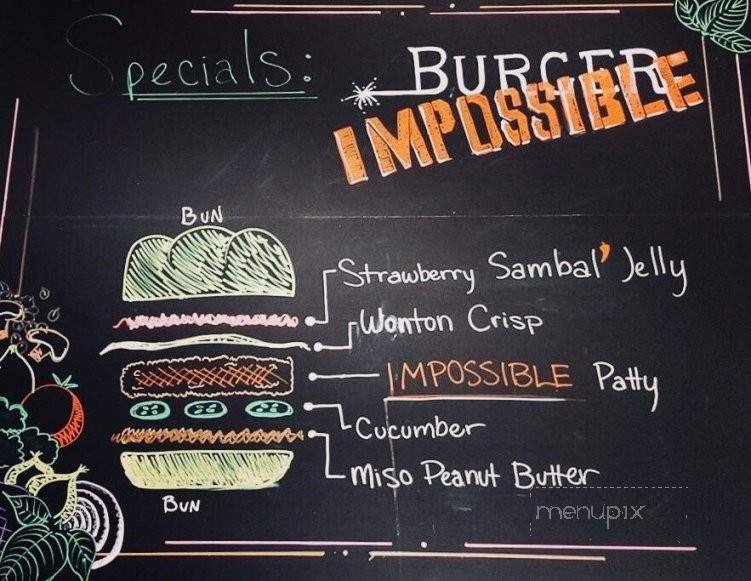 Specials:
BURGER
IMPOSSIBLE
BUN
Strawberry Sambal' Jelly
Wonton Crisp
IMPOSSIBLE Patty
Cucumber
Miso Peanut Butter
BUN
menupix